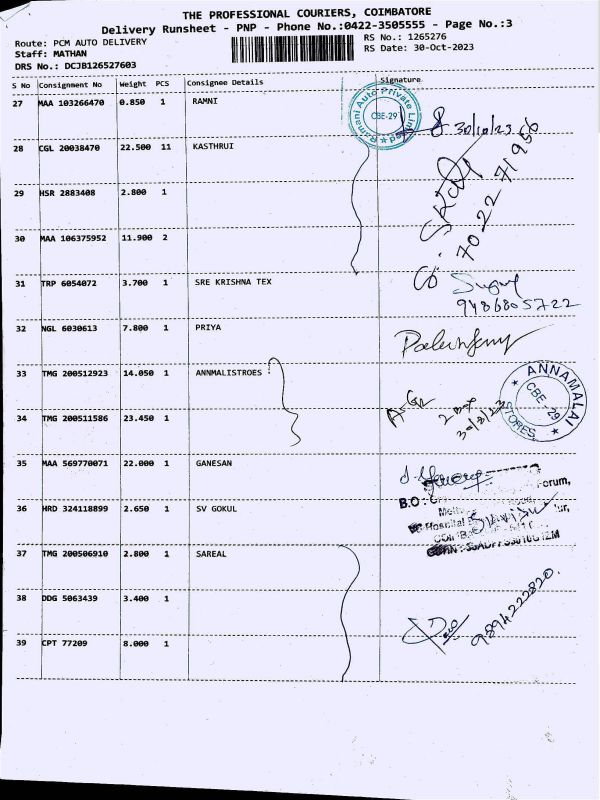 THE PROFESSIONAL COURIERS, COIMBATORE
Delivery Runsheet - PNP - Phone No.:0422-3505555 - Page No.:3
Route: PCM AUTO DELIVERY
RS No.: 1265276
Staff: MATHAN
RS Date: 30-Oct-2023
DRS No.: DCJB126527603
S No Consignment No Weight PCS Consignee Details Signature
27 MAA 103266470 0.850 1 RAMNI
Ramani Auto Private Limited
CBE-29
30/10/23
28 CGL 20038470 22.500 11 KASTHRUI
29 HSR 2883408 2.800 1
70 22 71956
30 MAA 106375952 11.900 2
31 TRP 6054072 3.700 1 SRE KRISHNA TEX
9486805722
32 NGL 6030613 7.800 1 PRIYA
33 TMG 200512923 14.050 1 ANNMALISTROES
ANNAMALAI STORES
CBE-29
34 TMG 200511586 23.450 1
35 MAA 569770071 22.000 1 GANESAN
B.O : Forum,
36 HRD 324118899 2.650 1 SV GOKUL
Hospital
37 TMG 200506910 2.800 1 SAREAL
38 DDG 5063439 3.400 1
9894222820
39 CPT 77209 8.000 1